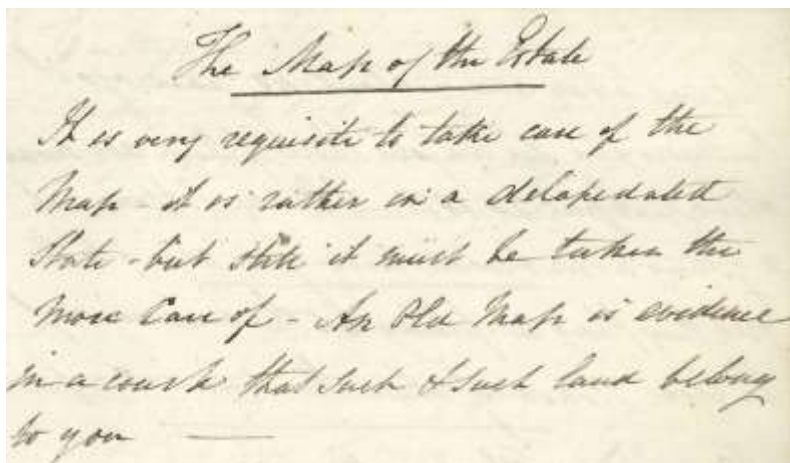 The Map of the Estate
It is very requisite to take care of the
Map - it is rather in a delapedated
State - but still it must be taken the
more Care of - An Old Map is evidence
in a court that such & such land belong
to you —